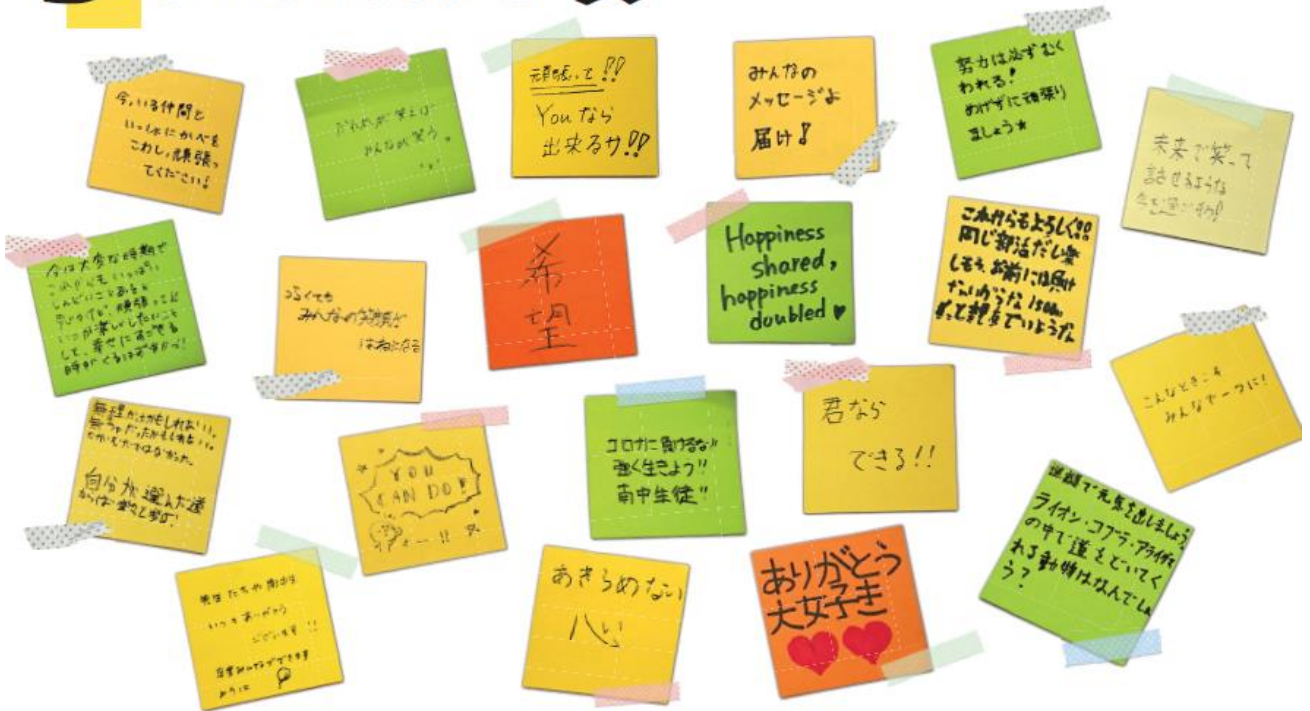 今、いる仲間と
いっしょにかべを
こわし、頑張っ
てください!
だれかが笑えば
みんなが笑う。
頑張って!!
Youなら
出来るサ!!
みんなの
メッセージよ
届け!
努力は必ずむく
われる!
めげずに頑張り
ましょう★
未来で笑って
話せるような
今は大変な時期で
これからもいっぱい
しんどいことあると
思うけど、頑張ってれば
いつか楽しいしたいこと
して、幸せにすごせる
時がくるはずやから!
つらくても
みんなの笑顔が
はねになる
希
望
Happiness
shared,
happiness
doubled ♥
これからもよろしく!!
同じ部活だし楽
しもう、お前には負け
ないからな 1500m
ずっと親友でいような
こんなときこそ
みんなで一つに!
無理かもしれない。
無ちゃだったかもしれない。
でもむだではなかった。
自分が選んだ道
YOU
CAN DO!
コロナに負けるな!!
強く生きよう!!
南中生徒!!
君なら
できる!!
謎解で元気を出しましょう
ライオン・コブラ・アライグマ
の中で道をどいてく
れる動物はなんでしょ
う?
先生たちや
いつもありがとう
ございます!!
卒業
ように
あきらめない
心
ありがとう
大女子き